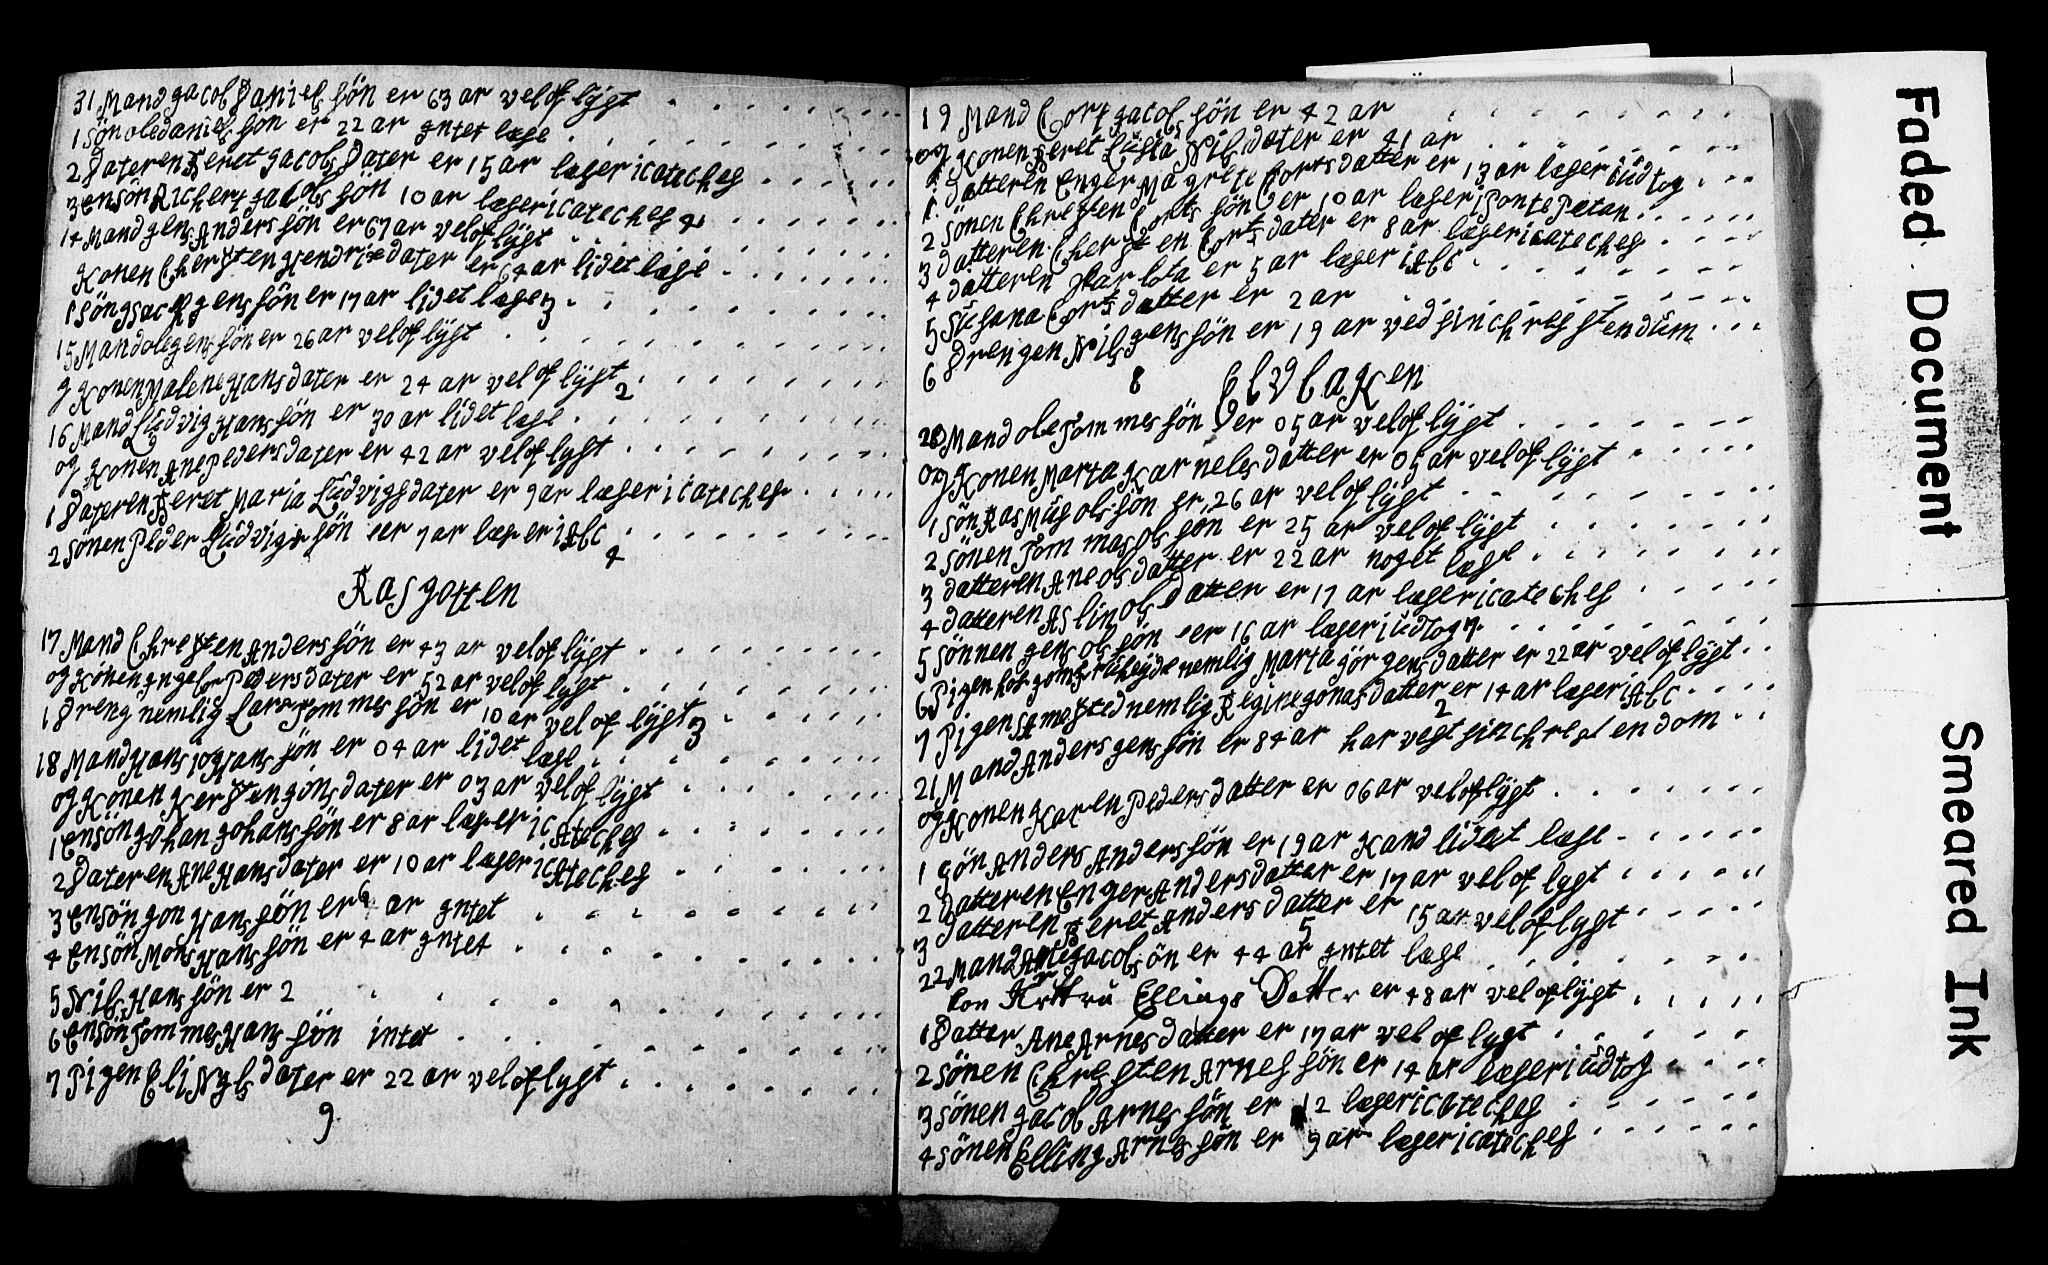 31 Mand Jacob Daniels sön er 63 ar vel of lÿgt
1 Sön ole daniels sön er 22 ar Intet læse
2 Dateren Beret Jacobs Dater er 15 ar læser i cateches
3 ensön Richert Jacobs sön 10 ar læser i cateches 4
14 Mand Jens Anders sön er 67 ar vel of lÿgt
Konen Chersten Hendrix dater er 64 ar lidet læse
1 sön Jsach Jens sön er 17 ar lidet læse 3
15 Mand ole Jens sön er 26 ar vel of lÿgt
og Konen Malene Hans dater er 24 ar vel of lÿgt
2
16 Mand Lüdvig Hans sön er 30 ar lidet læse
og Konen Ane Peders dater er 42 ar vel of lygt
1 Dateren Beret Maria Lüdvigs dater er 9 ar læser i cateches
2 Sönen Peder Lüdvigs sön er 7 ar læser i Abc
4
Rasgotten
17 Mand Chresten Anders sön er 43 ar vel of lÿgt
og Konen Ingebor Peders dater er 52 ar vel of lygt
1 Dreng nemlig Lars Tommes sön er 10 ar vel of lÿgt
3
18 Mand Hans Joh Hans sön er 04 ar lidet læse
og Konen Kersten Jons dater er 03 ar vel of lÿgt
1 ensön Johan Johans sön er 8 ar læser i cateches
2 Dateren Ane Hans dater er 10 ar læser i cateches
3 ensön Jon Hans sön er 9 ar Intet
4 ensön Mons Hans sön er 4 ar Intet
5 Nils Hans sön er 2
6 ensön Tommes Hans sön intet
7 Pigen Eli Nyls dater er 22 ar vel of lygt
9
19 Mand Cort Jacobs sön er 42 ar
og Konen Beret Lüsia Nils dater er 41 ar
1 datteren Enger Magrete Corts datter er 13 ar læser i üdtog
2 sönen Chresten Corts sön er 10 ar læser i Ponte Petan
3 datteren Chersten Corts dater er 8 ar læser i cateches
4 datteren Sharlota er 5 ar læser i Abc
5 Süsana Corts datter er 2 ar
6 Drengen Nils Jens sön er 19 ar ved sin chresstendüm
8
Elvbaken
20 Mand ole Tommes sön er 05 ar vel of lÿgt
og Konen Marta Karneles datter er 05 ar vel of lÿgt
1 sön Rasmüs ols sön er 26 ar vel of lÿgt
2 sönen Tommas ols sön er 25 ar vel of lÿgt
3 datteren Ane ols datter er 22 ar noget læse
4 datteren Aslin ols datter er 17 ar læser i cateches
5 Sönnen Jens ols sön er 16 ar læser i üdtog 7
6 Pigen hos nemlig Marta Jörgens datter er 22 ar vel of lÿgt
7 Pigen sa mested nemlig Regine Jonas datter er 14 ar læser i Abc
2
21 Mand Anders Jens sön er 84 ar har vest sin chrestendom
og Konen Karen Peders datter er 06 ar vel of lÿgt
1 sön Anders Anders sön er 19 ar Kand lidet læse
2 Datteren Enger Anders datter er 17 ar vel of lygt
3 datteren Beret Anders datter er 15 ar vel of lÿgt
5
22 Mand Arne Jacobs ön er 44 ar Intet læse
Kon Ellings Datter er 48 ar vel of lÿgt
1 Datter Ane Arnes datter er 17 ar vel of lygt
2 sönen Chresten Arnes sön er 14 ar læser i üdtog
3 sönen Jacob Arnes sön er 12 læser i cateches
4 sönen Elling Arnes sön er 9 ar læser i cateches
Faded Document
Smeared Ink